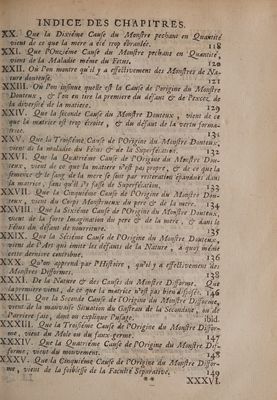 INDICE DES CHAPITRES.
XX. Que la Dixiéme Cause du Monstre pechant en Quantité
vient de ce que la mere a été trop ébranlée. 118
XXI. Que l'Onziéme Cause du Monstre pechant en Quantité,
vient de la Maladie même du Fetus. 120
XXII. Où l'on montre qu'il y a effectivement des Monstres de Na-
ture douteuse.
XXIII. Où l'on insinue quelle est la Cause de l'origine du Monstre
Douteux, & l'on en tire la premiere du défaut & de l'excez, de
la diversité de la matiere.
XXIV. Que la seconde Cause du Monstre Douteux, vient de ce
que la matiere est trop étroite, & du défaut de la vertu forma-
trice. 131
XXV. Que la Troisiéme Cause de l'Origine du Monstre Douteux,
vient de la maladie du Fetus & de la Superfétation. 132
XXVI. Que la Quatriéme Cause de l'Origine du Monstre Dou-
teux, vient de ce que la matiere n'est pas propre, & de ce que la
semence & le sang de la mere se sont par reiteration épandues dans
la matrice, sans qu'il s'y fasse de Superfétation. 133
XXVII. Que la Cinquiéme Cause de l'Origine du Monstre Dou-
teux, vient du Corps Monstrueux du pere & de la mere. 134
XXVIII. Que la Sixiéme Cause de l'Origine du Monstre Douteux,
vient de la forte Imagination du pere & de la mere, & dans le
Fétus du défaut de nourriture. 135
XXIX. Que la Sétiéme Cause de l'Origine du Monstre Douteux,
viens de l'Art qui imite les défauts de la Nature, à quoi même
cette derniere contribue. 136
XXX. Qu'on apprend par l'Histoire, qu'il y a effectivement des
Monstres Difformes.
XXXI. De la Nature & des Causes du Monstre Difforme. Que
la premiere vient, de ce que la matrice n'est pas bien disposée. 146
XXXII. Que la Seconde Cause de l'Origine du Monstre Difforme,
vient de la mauvaise Situation du Gasteau de la Secondine, ou de
l'arriere-faix, dont on explique l'usage. ibid.
XXXIII. Que la Troisiéme Cause de l'Origine du Monstre Diffor-
me, vient du Mole ou du faux-germe. 147
XXXIV. Que la Quatriéme Cause de l'Origine du Monstre Dif-
forme, vient du mouvement. 148
XXXV. Que la Cinquiéme Cause de l'Origine du Monstre Diffor-
me, vient de la foiblesse de la Faculté Separative. 149
XXXVI.